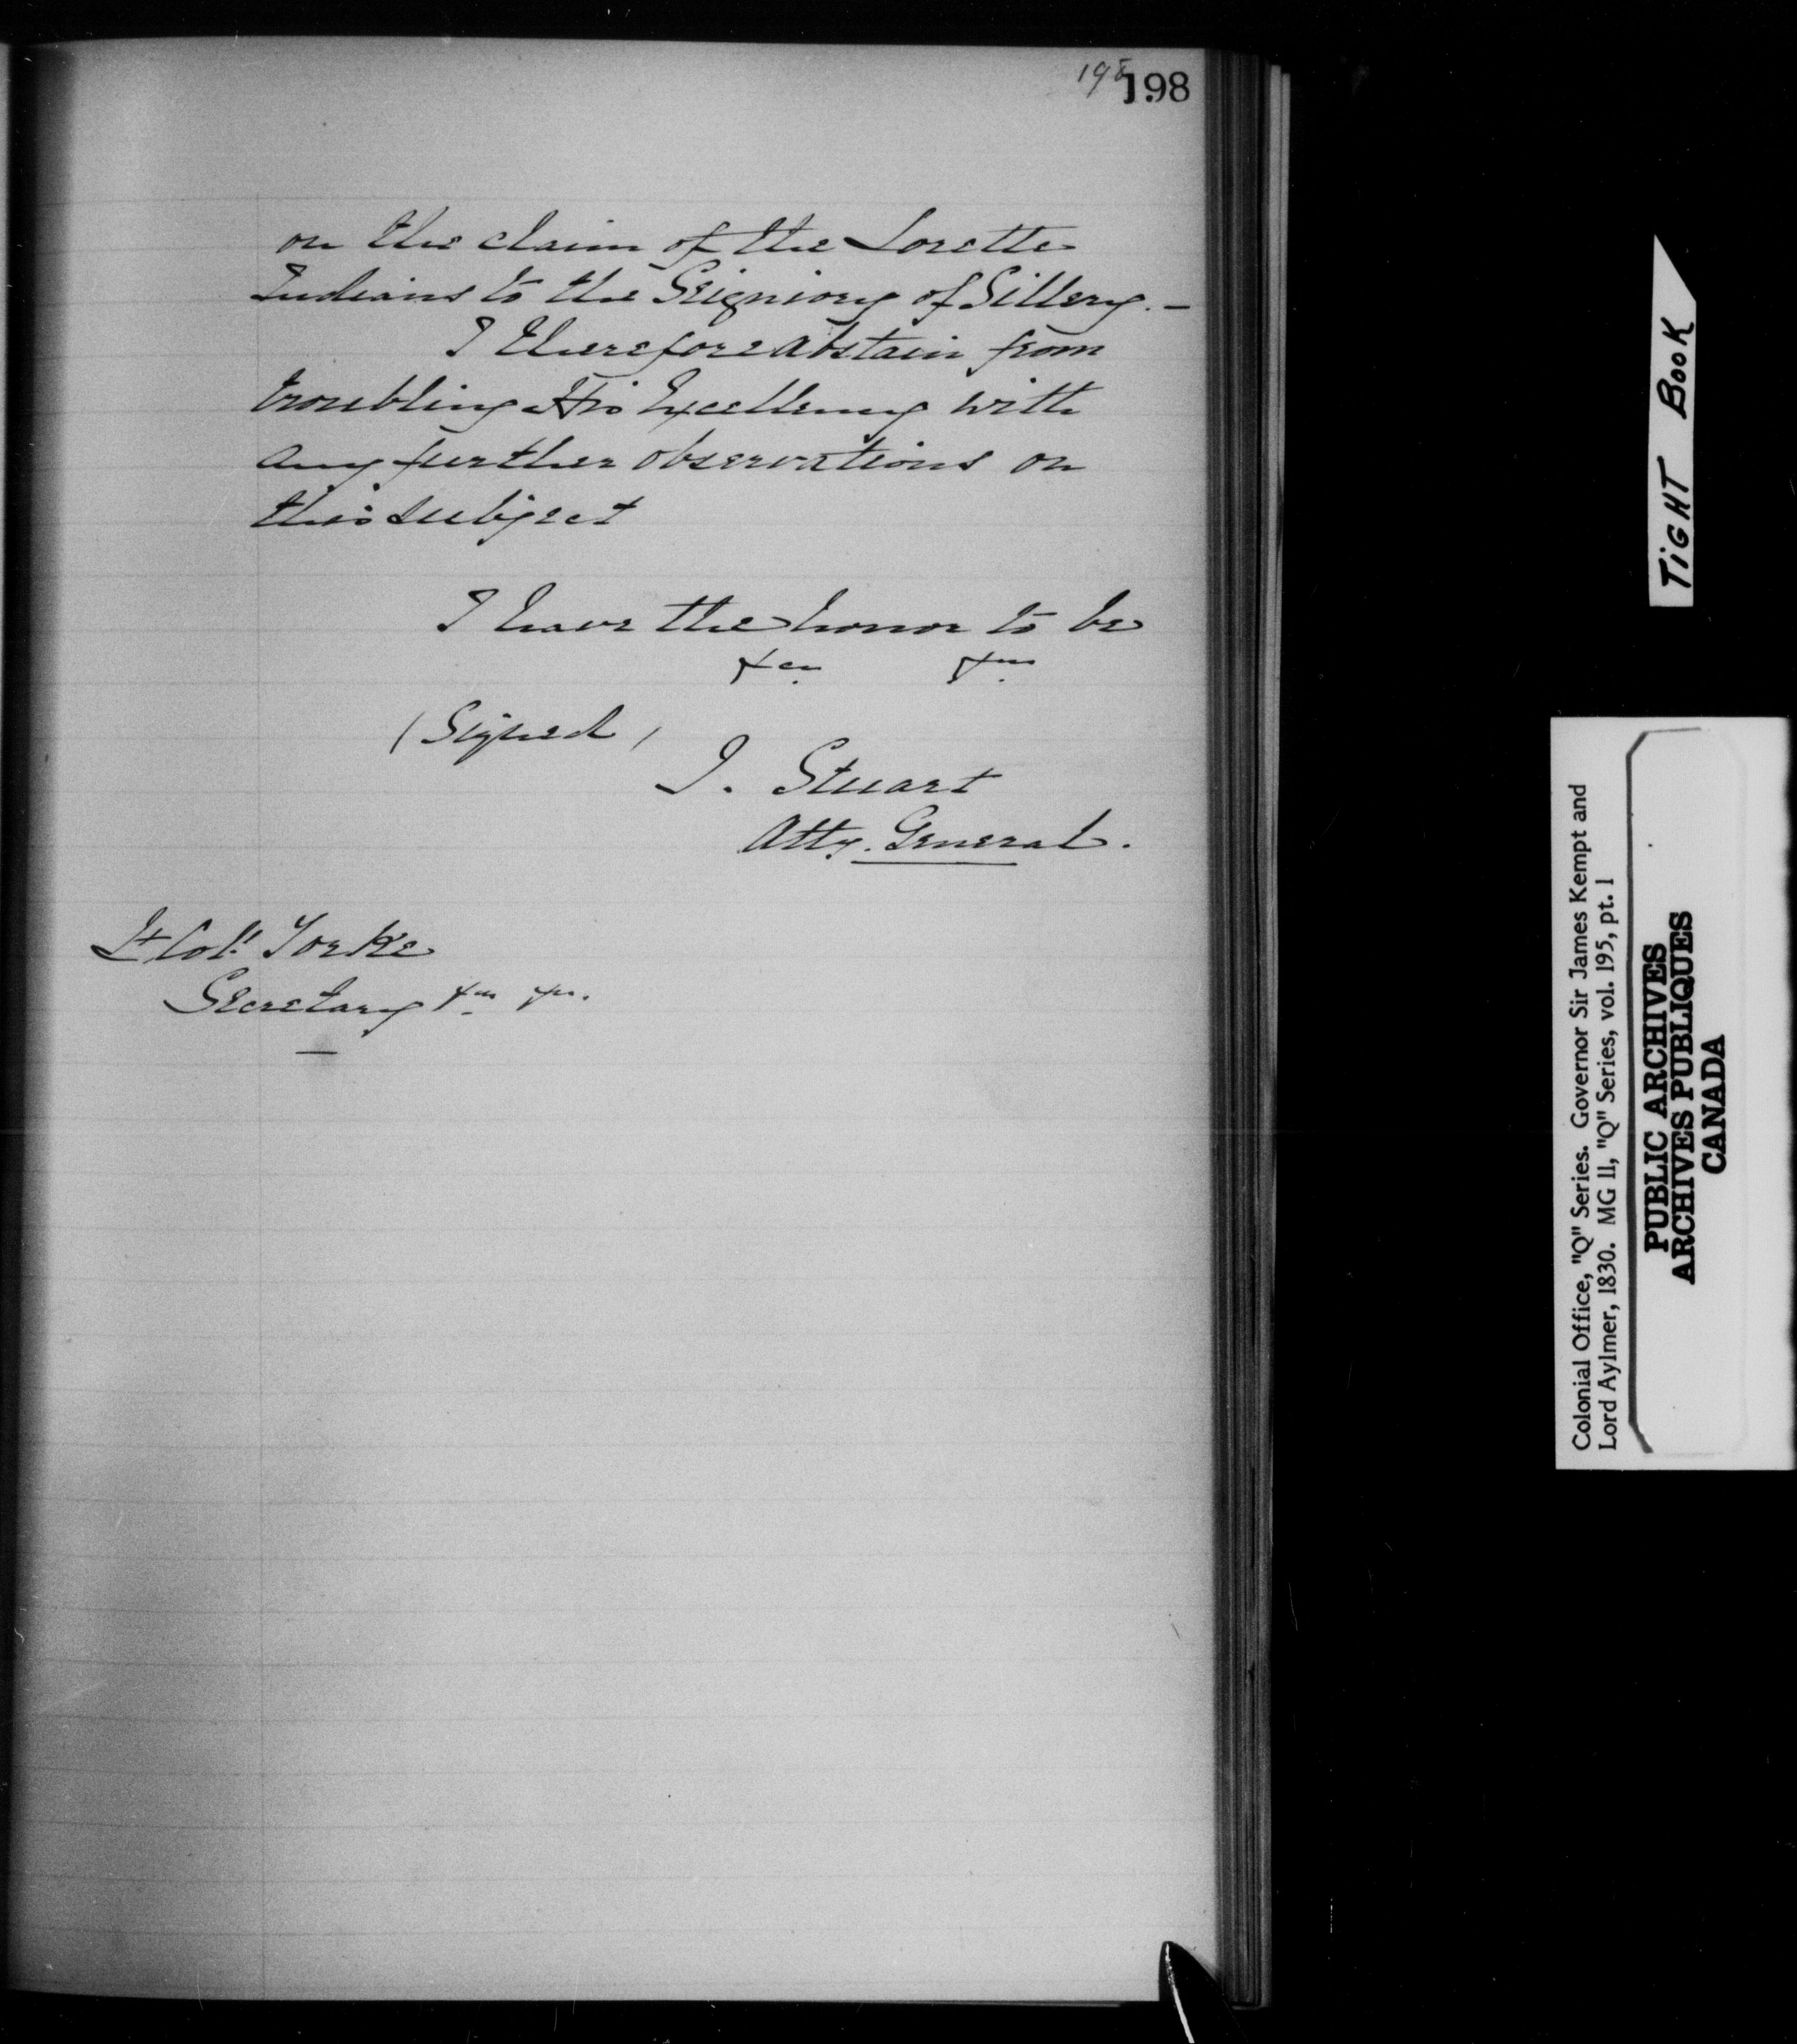 198
198
on the claim of the Lorette
Indians to the Seigniory of Sillery. –
I therefore abstain from
troubling His Excellency with
any further observations on
this subject
I have the honor to be
&ca &ca
(Signed)
J. Stuart
Atty. General.
Lt Col. Yorke
Secretary &ca &ca.
TIGHT BOOK
Colonial Office, "Q" Series. Governor Sir James Kempt and
Lord Aylmer, 1830. MG 11, "Q" Series, vol. 195, pt. 1
PUBLIC ARCHIVES
ARCHIVES PUBLIQUES
CANADA